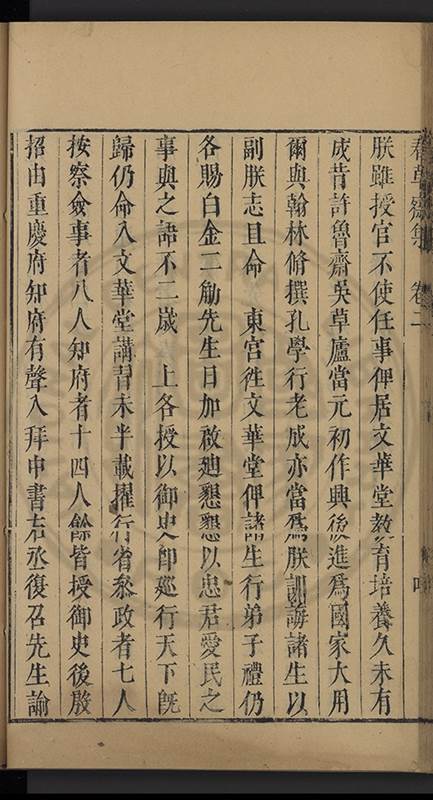 春草齋集 卷二
朕雖授官不使任事俾居文華堂教育培養久未有
成昔許魯齋吳草廬當元初作興後進爲國家大用
爾與翰林脩撰孔學行老成亦當爲朕訓誨諸生以
副朕志且命 東宮徃文華堂俾諸生行弟子禮仍
各賜白金二觔先生日加啟迪懇懇以忠君愛民之
事與之語不二歲 上各授以御史卽廵行天下旣
歸仍命入文華堂講習未半載擢行省叅政者七人
按察僉事者八人知府者十四人餘皆授御史後殷
招由重慶府知府有聲入拜中書右丞復召先生諭